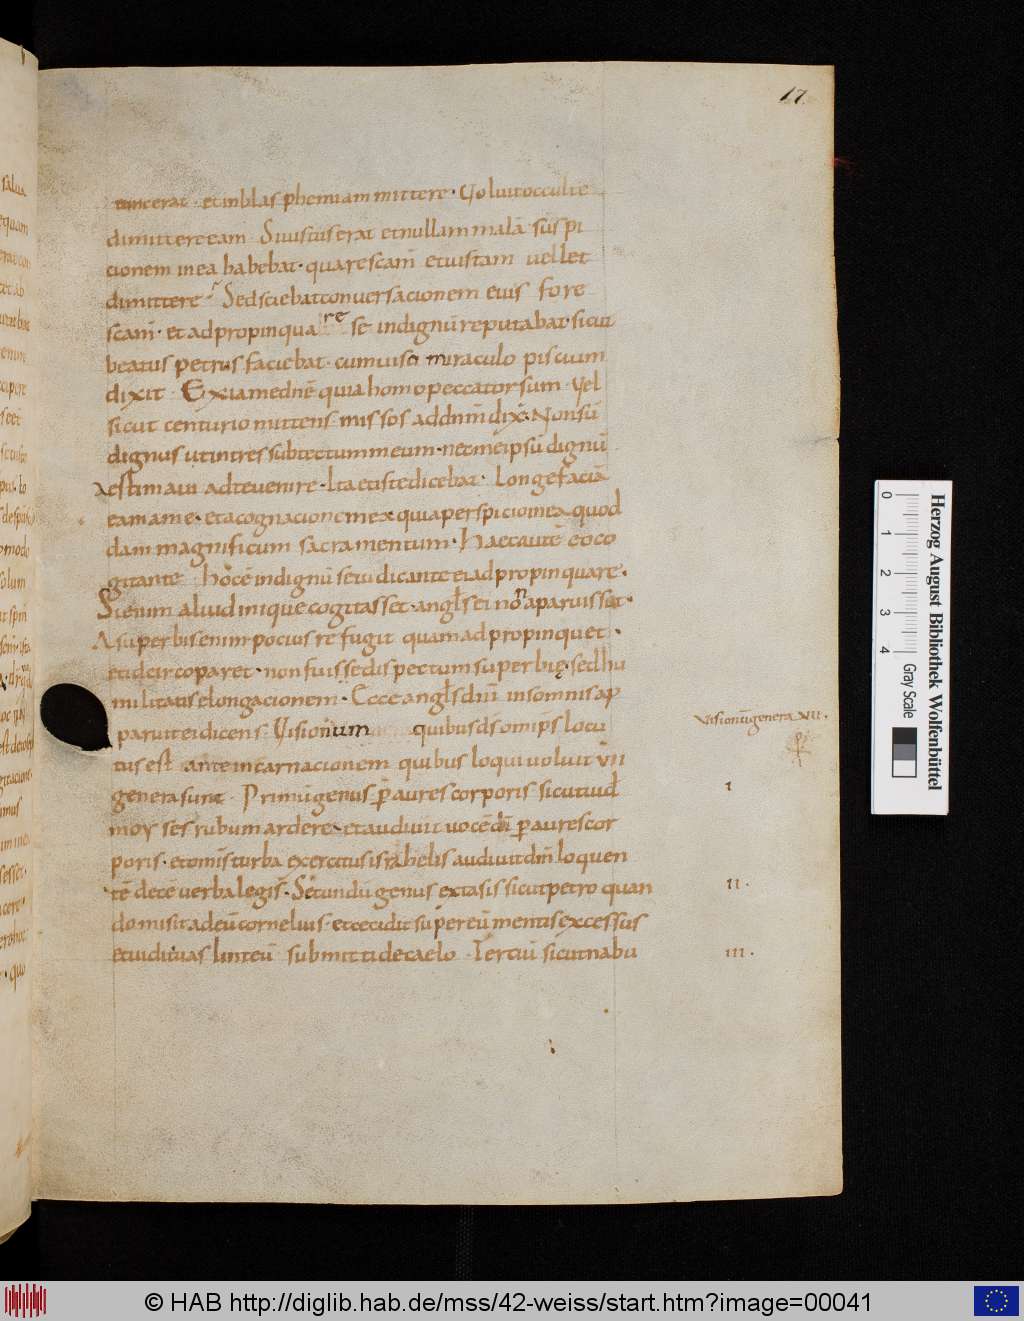 17
et in blasphemiam mittere · Voluit occulte
dimittere eam Si iustus erat et nullam malā suspi
cionem in ea habebat · quare scam̄ et iustam vellet
dimittere · Sed sciebat conversacionem eius fore
scam̄ · et ad propinquare se indignū reputabat · sicut
beatus petrus faciebat · cum miraculo piscium
dixit · Exi a me dnē quia homo peccator sum · Vel
sicut centurio mittens missos ad dnm̄ dix̄ · Non sū
dignus ut intres sub tectum meum · nec me ipsū dignū
aestimavi ad te venire · Ita et iste dicebat · Longe faciā
eam a me · et a cognacione mea quia perspicio in ea quod
dam magnificum sacramentum · Haec autē eo co
gitante · hoc ē indignū se iudicante ei ad propinquare ·
Si enim aliud inique cogitasset · angls ei non aparuisset ·
A superbis enim pocius refugit quam ad propinquet ·
et idcirco paret · non fuisse dispectum superbię · sed hu
militatis elongacionem · Ecce angls dni in somnis ap
paruit ei dicens · Visionum quibus ds omps locu
tus est ante incarnacionem quibus loqui voluit vii
genera sunt · Primū genus p aures corporis sicut vid
moyses rubum ardere · et audivit vocē dni p aures cor
poris · et omis turba exercitus israhelis audivit dnm̄ loquen
tē decē verba legis · Secundū genus extasis sicut petro quan
do misit ad eū cornelius · et cecidit super eū mentis excessus
et vidit vas linteū submitti de caelo · Tertiū sicut nabu
Visionū genera VII ·
I
II ·
III ·
Herzog August Bibliothek Wolfenbüttel
Gray Scale
0
1
2
3
4
© HAB http://diglib.hab.de/mss/42-weiss/start.htm?image=00041